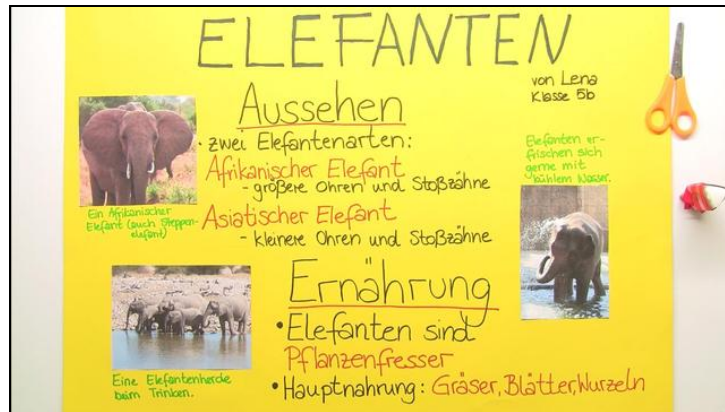 ELEFANTEN
von Lena
Klasse 5b
Aussehen
• zwei Elefantenarten:
Afrikanischer Elefant
- größere Ohren und Stoßzähne
Asiatischer Elefant
- kleinere Ohren und Stoßzähne
Ein Afrikanischer
Elefant (auch Steppen-
elefant)
Elefanten er-
frischen sich
gerne mit
kühlem Wasser.
Ernährung
• Elefanten sind
Pflanzenfresser
• Hauptnahrung: Gräser, Blätter, Wurzeln
Eine Elefantenherde
beim Trinken.